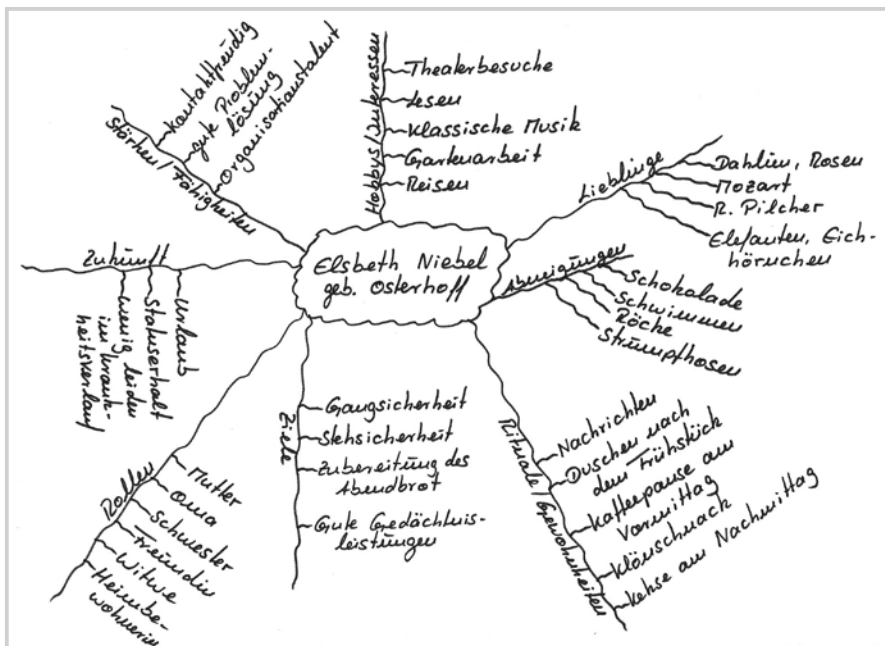 Elsbeth Niebel
geb. Osterhoff
Stärken/Fähigkeiten
Kontaktfreudig
gute Problem-
lösung
Organisationstalent
Hobbys/Interessen
Theaterbesuche
Lesen
Klassische Musik
Gartenarbeit
Reisen
Lieblinge
Dahlien, Rosen
Mozart
R. Pilcher
Elefanten, Eich-
hörnchen
Abneigungen
Schokolade
Schwimmen
Röcke
Strumpfhosen
Rituale/Gewohnheiten
Nachrichten
Duschen nach
dem Frühstück
Kaffeepause am
Vormittag
Klönschnack
Kekse am Nachmittag
Ziele
Gangsicherheit
Stehsicherheit
Zubereitung des
Abendbrot
Gute Gedächtnis-
leistungen
Rollen
Mutter
Oma
Schwester
Freundin
Witwe
Heimbe-
wohnerin
Zukunft
Urlaub
Statuserhalt
wenig leiden
im Krank-
heitsverlauf